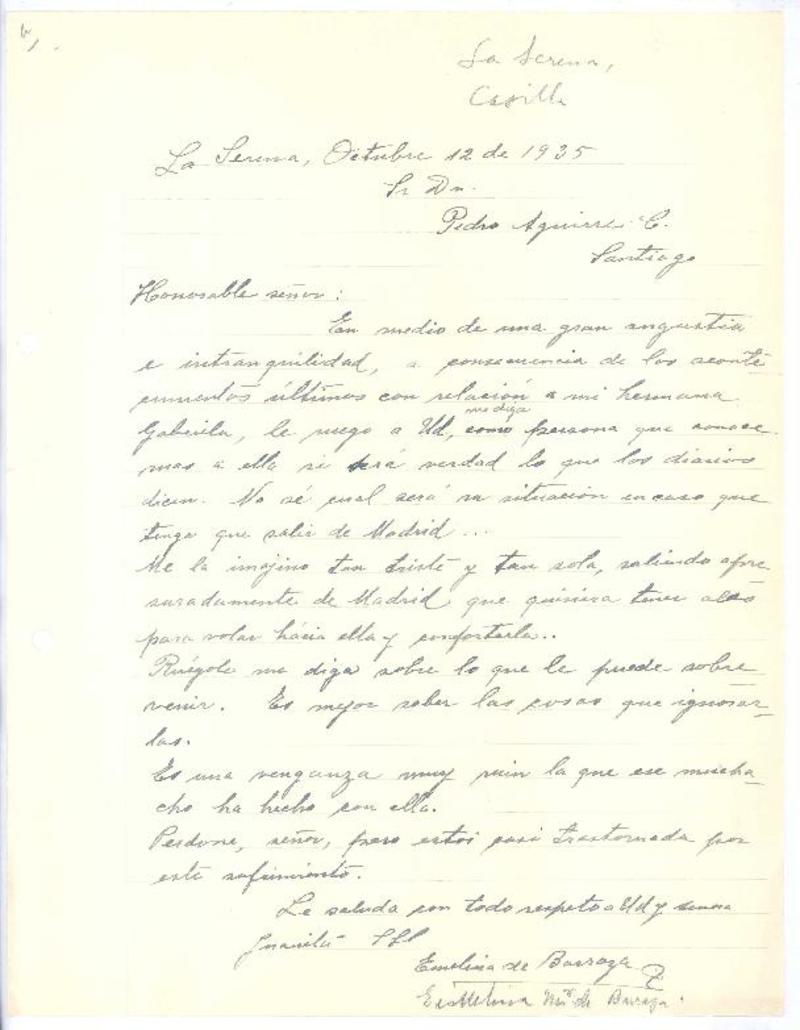 La Serena,
Casilla
La Serena, Octubre 12 de 1935
Sr Dn.
Pedro Aguirre C.
Santiago
Honorable señor:
En medio de una gran angustia
e intranquilidad, a consecuencia de los aconte
cimientos últimos con relación a mi hermana
Gabriela, le ruego a Ud, como persona que conoce
me diga
mas a ella si será verdad lo que los diarios
dicen. No sé cual será su situación en caso que
tenga que salir de Madrid ...
Me la imajino tan triste y tan sola, saliendo apre
suradamente de Madrid que quisiera tener alas
para volar hácia ella y confortarla..
Ruégole me diga sobre lo que le puede sobre
venir. Es mejor saber las cosas que ignorar-
las.
Es una venganza muy ruin la que ese mucha-
cho ha hecho con ella.
Perdone, señor, pero estoi casi trastornada por
este sufrimiento.
Le saluda con todo respeto a Ud y senora
Juanita SSS
Emelina de Barraza
de Barraza.